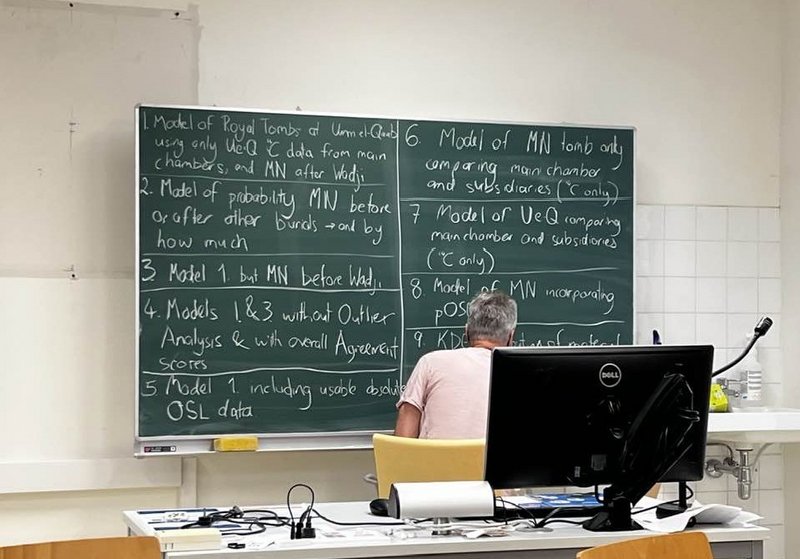 1. Model of Royal Tombs at Umm el-Qaab
using only UeQ ¹⁴C data from main
chambers, and MN after Wadji
2. Model of probability MN before
or after other burials → and by
how much
3 Model 1 but MN before Wadji
4. Models 1 & 3 without Outlier
Analysis & with overall Agreement
scores
5 Model 1 including usable absolute
OSL data
6. Model of MN tomb only
comparing main chamber
and subsidiaries (¹⁴C only)
7 Model of UeQ comparing
main chamber and subsidiaries
(¹⁴C only)
8. Model of MN incorporating
9. of material
DELL